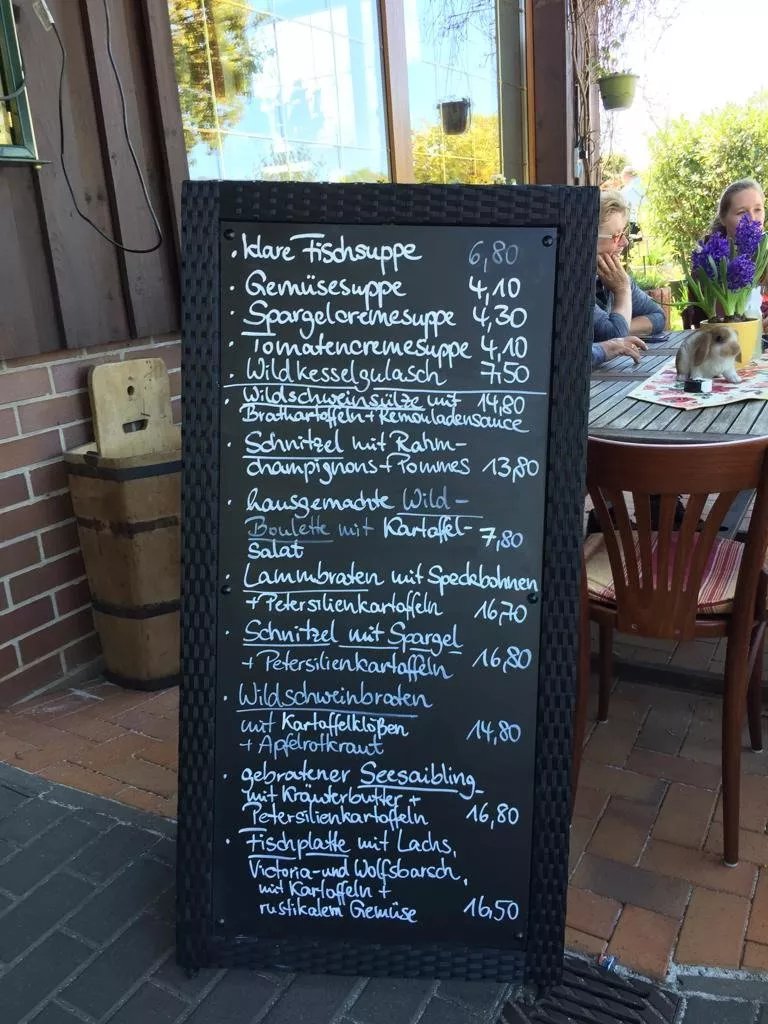 · klare Fischsuppe 6,80
· Gemüsesuppe 4,10
· Spargelcremesuppe 4,30
· Tomatencremesuppe 4,10
· Wildkesselgulasch 7,50
· Wildschweinsülze mit 14,80
Bratkartoffeln + Remouladensauce
· Schnitzel mit Rahm-
champignons + Pommes 13,80
· hausgemachte Wild-
Boulette mit Kartoffel-
salat 7,80
· Lammbraten mit Speckbohnen
+ Petersilienkartoffeln 16,70
· Schnitzel mit Spargel
+ Petersilienkartoffeln 16,80
· Wildschweinbraten
mit Kartoffelklößen 14,80
+ Apfelrotkraut
· gebratener Seesaibling
mit Kräuterbutter +
Petersilienkartoffeln 16,80
· Fischplatte mit Lachs,
Victoria- und Wolfsbarsch,
mit Kartoffeln +
rustikalem Gemüse 16,50